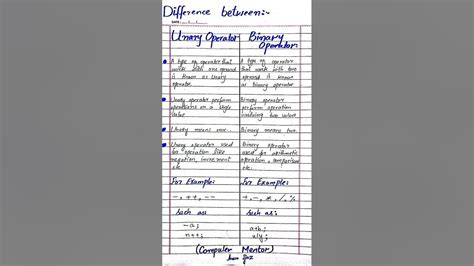 Difference between:-
DATE: / /
Unary Operator
Binary
Operator
A type of operator that
work with one operand
is known as unary
operator.
A type of
operator that
work with two
operand is known
as binary operator
Unary operator perform
operations on a single
value
Binary operator
perform operation
involving two values
Unary means one..
Binary means two.
Unary operator used
for operation like
negation, increment
etc
Binary operator
used for arithmetic
operation, comparison
etc.
For Example:
For Example:
-, ++, --
+, -, *, /, %
such as:
such as:
-a;
n++;
a+b;
x/y;
(Computer Mentor)